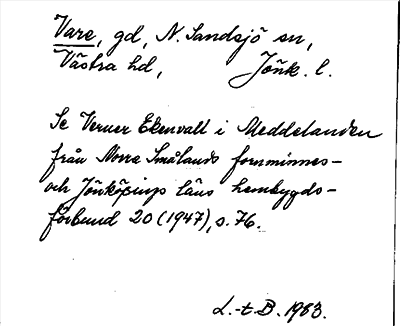 Vare, gd, N. Sandsjö sn,
Västra hd, Jönk. l.
Se Verner Ekenvall i Meddelanden
från Norra Smålands fornminnes-
och Jönköpings läns hembygds-
förbund 20 (1947), s. 76.
L.-t B. 1983.